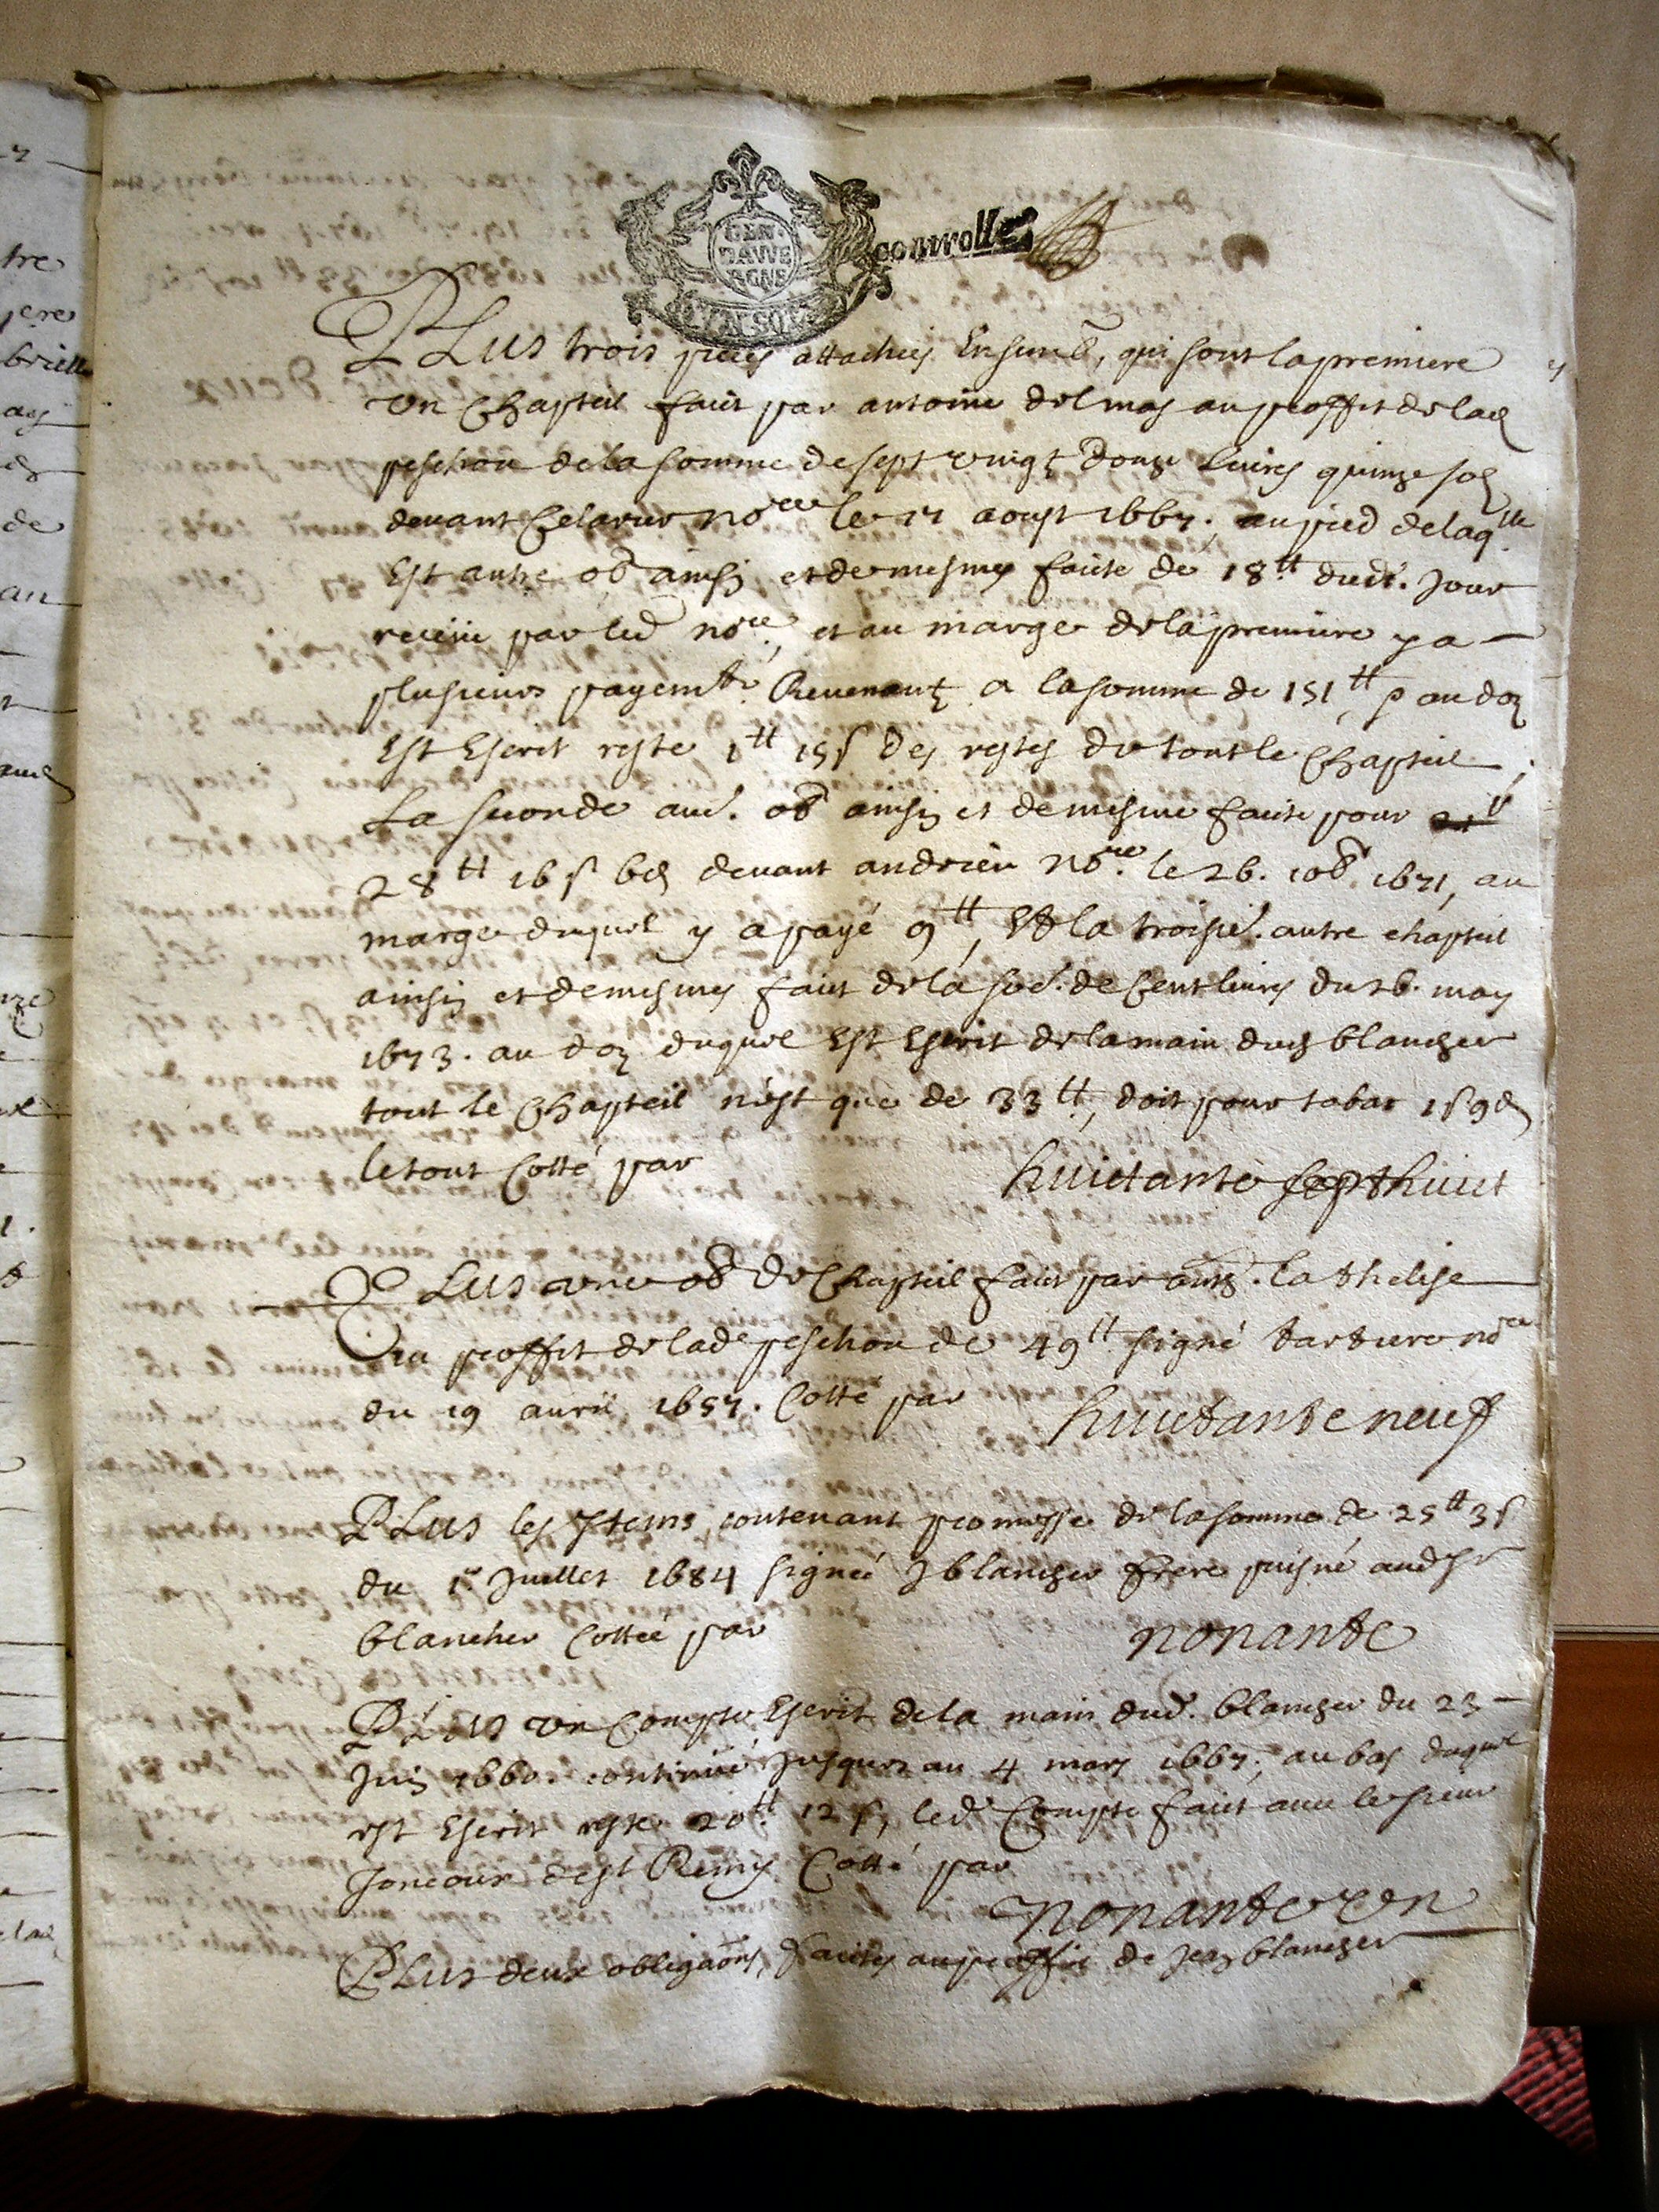 GEN.
DAVVE
RGNE
VN SOL
controlle
PLus trois pieces attachees Ensemb, qui sont la premiere
Un Chapteil faict par antoine delmas au proffit de lad
peschou de la somme de sept vingt douze Livres quinze sols
devant Celarier no.re le 17 aoust 1667. au pied de laq.lle
Est autre ob ainsy et de mesmes faicte de 18tt dud. Jour
receue par led no.re, et au marge de la premiere y a
plusieurs payemts. Revenant a la somme de 151tt, au dos
Est Escrit reste 1tt 15s des restes de tout le Chapteil,
La seconde aud. ob ainsy et de mesme faicte pour
28tt 16s 6d devant andrieu no.re le 26. 10b. 1671, au
marge duquel y a payé 9tt, Et la troisie. autre chapteil
ainsy et de mesmes faict de la so.e de Cent livres du 26. may
1673. au dos duquel Est Escrit de la main dud blancher
tout le Chapteil n'est que de 33tt, doit pour tabac 1s 9d
le tout Cotté par
huictante septhuict
PLus une ob de Chapteil faict par ant. la
au proffit de lade peschou de 49tt signé no.re
du 19 avril 1657. Cotté par
huictante neuf
PLus les Items contenant promesse de la somme de 25tt 3s
du 1r Juillet 1684 signée J blancher frere puisné aud Sr
blancher Cottée par
nonante
PLus un Compte Escrit de la main dud. blancher du 23
Juin 1660. continué jusques au 4 mars 1667, au bas duquel
est Escrit reste 20tt 12s, led Compte faict avec le sieur
Joncoux de st Remy Cotté par
nonante un
PLus deux obligaons, faictes au proffit de Jean blancher